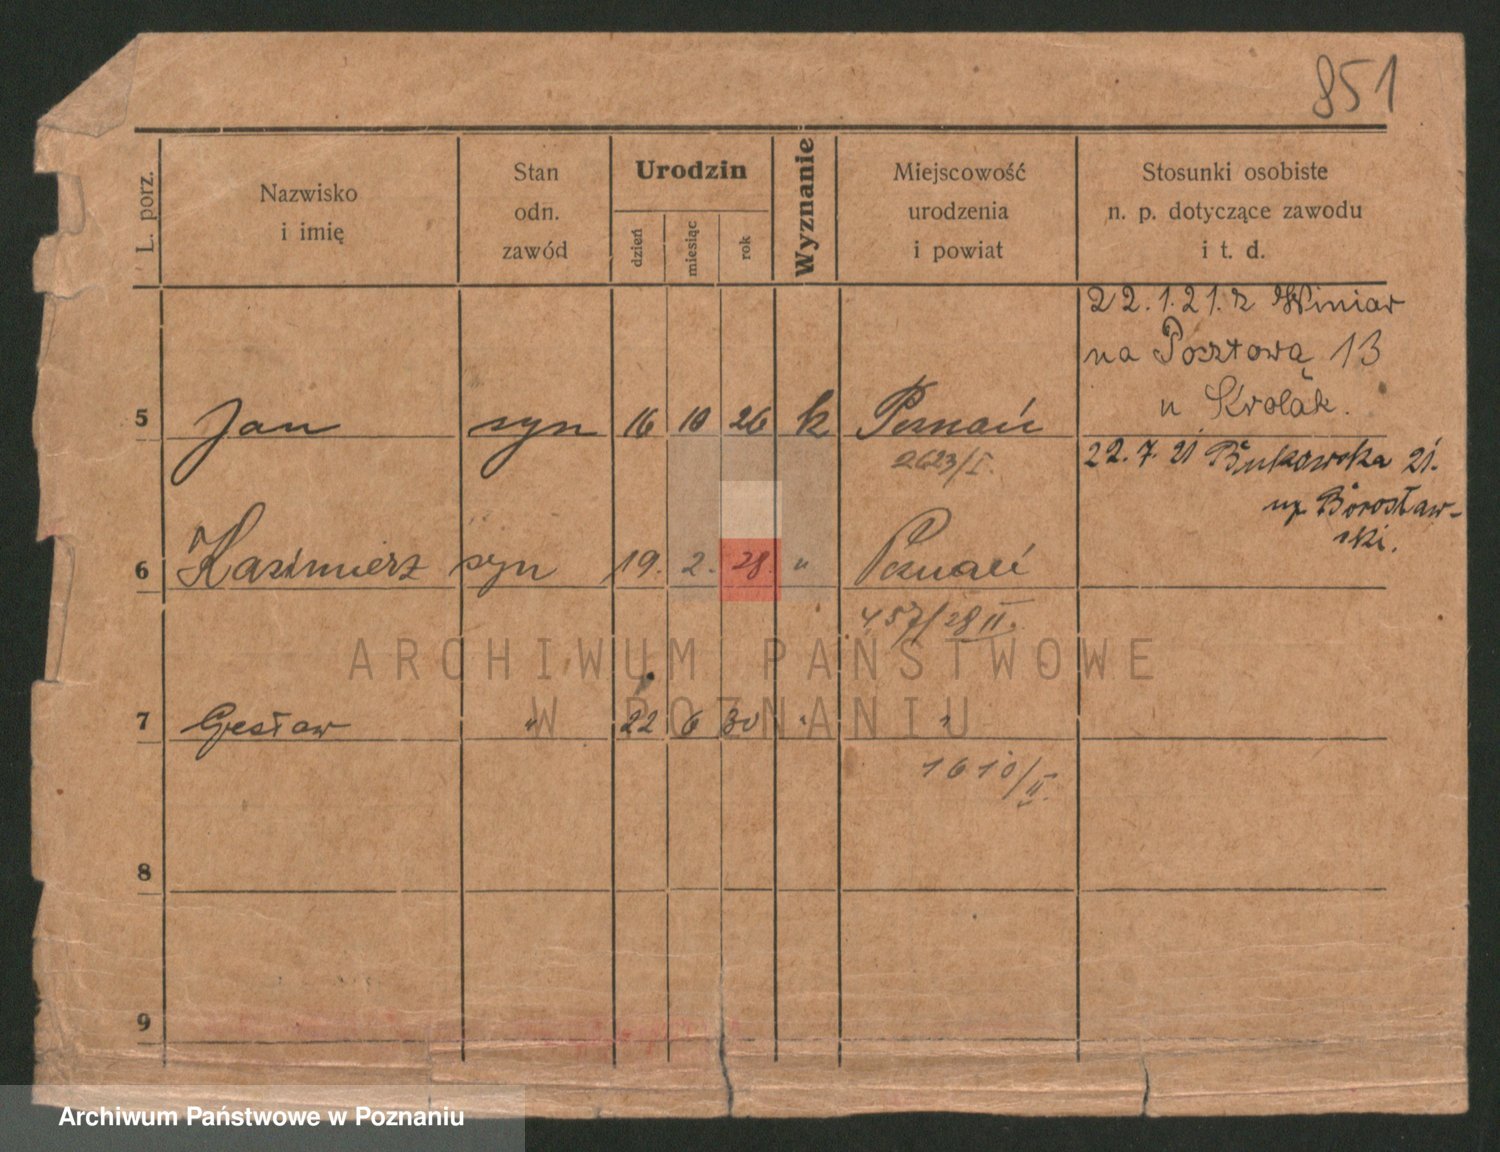 851
L. porz.
Nazwisko
i imię
Stan
odn.
zawód
Urodzin
dzień
miesiąc
rok
Wyznanie
Miejscowość
urodzenia
i powiat
Stosunki osobiste
n. p. dotyczące zawodu
i t. d.
22.1.21. z Winiar
na Pocztową 13
u Krolak.
5 Jan syn 16 10 26 k Poznań
2623/I.
22.7.21 Bukowska 21.
Borosław-
ski.
6 Kazimierz syn 19. 2. 28. " Poznań
457/28 II.
ARCHIWUM PAŃSTWOWE
W POZNANIU
7 Czesław " 22 6 30 " "
1610/II.
8
9
Archiwum Państwowe w Poznaniu